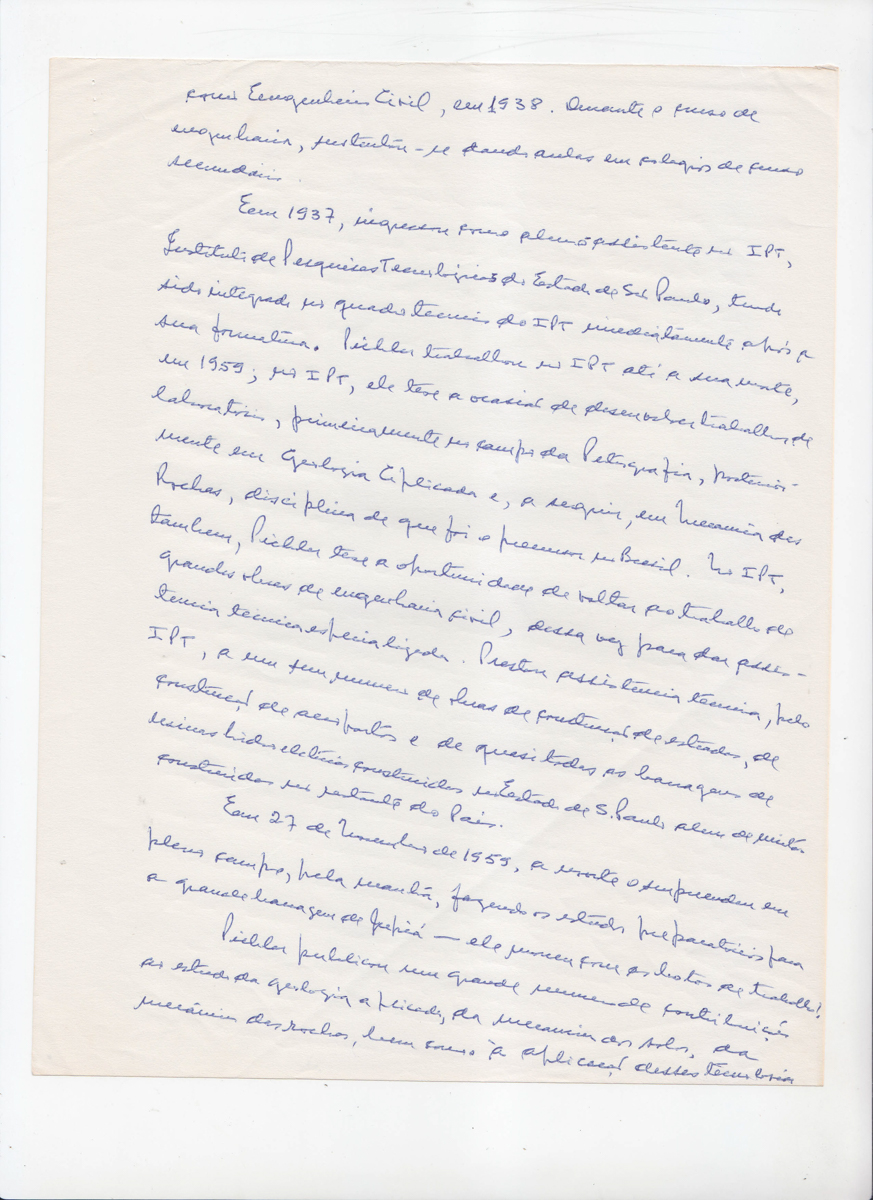 como Engenheiro Civil, em 1938. Durante o curso de
engenharia, sustentou-se dando aulas em colegios de curso
secundario.
Em 1937, ingressou como aluno assistente no IPT,
Instituto de Pesquisas Tecnológicas do Estado de São Paulo, tendo
sido integrado no quadro tecnico do IPT imediatamente após a
sua formatura. Pichler trabalhou no IPT até a sua morte,
em 1959; no IPT, ele teve a ocasião de desenvolver trabalhos de
laboratorio, primeiramente no campo da Petrografia, posterior-
mente em Geologia Aplicada e, a seguir, em Mecanica das
Rochas, disciplina de que foi o precursor no Brasil. No IPT,
tambem, Pichler teve a oportunidade de voltar ao trabalho de
grandes obras de engenharia civil, dessa vez para dar assis-
tencia técnica especializada. Prestou assistencia tecnica, pelo
IPT, a um sem numero de obras de construção de estradas, de
construção de aeroportos e de quasi todas as barragens de
usinas hidroeletricas construidas no Estado de S. Paulo alem de muitas
construidas no restante do Pais.
Em 27 de Novembro de 1959, a morte o surpreendeu em
pleno campo, pela manhã, fazendo os estudos preparatórios para
a grande barragem de Jupiá — ele morreu com as botas de trabalho!
Pichler publicou um grande numero de contribuições
ao estudo da geologia aplicada, da mecanica dos solos, da
mecânica das rochas, bem como à aplicação dessas tecnologia